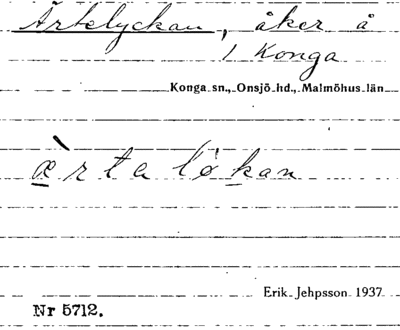 Ärtelyckan, åker å
1 Konga
Konga sn., Onsjö hd., Malmöhus län
æ̀rta løkan
Erik Jehpsson 1937
Nr 5712.